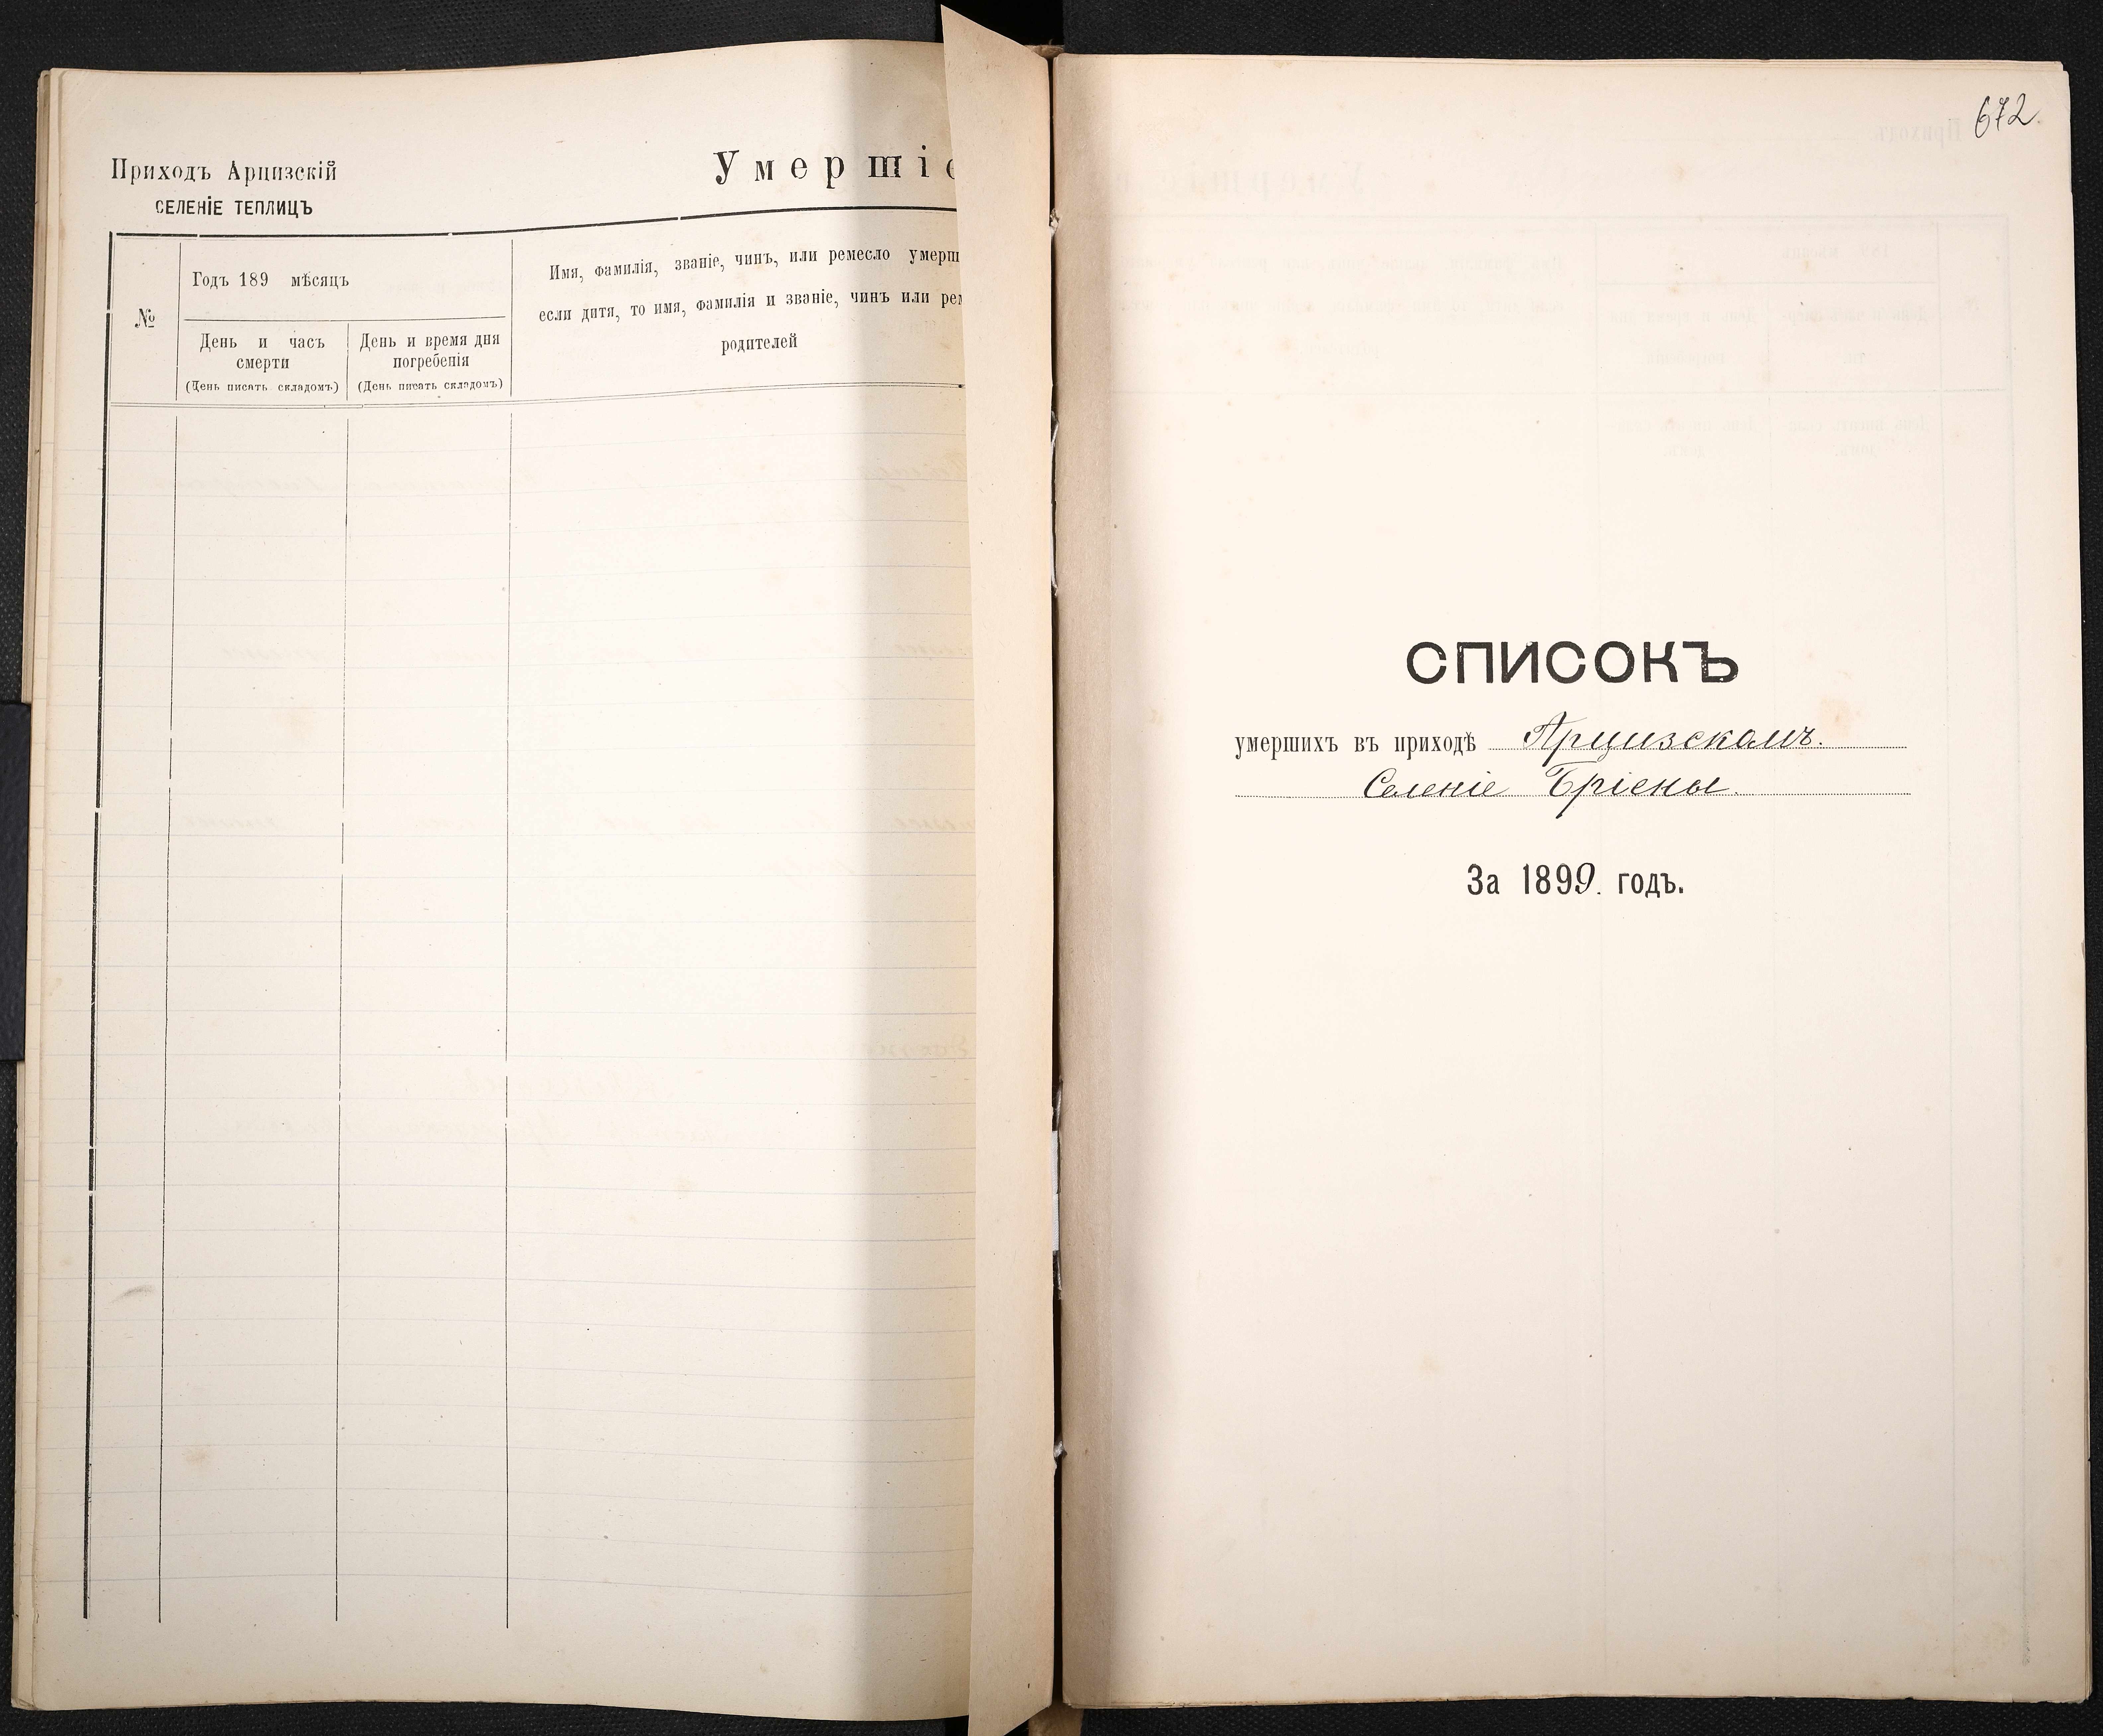 Приходъ Арцизскій
СЕЛЕНІЕ ТЕПЛИЦЪ
Умершіе
№
Годъ 189 мѣсяцъ
День и часъ смерти
(День писать складомъ)
День и время дня погребенія
(День писать складомъ)
Имя, фамилія, званіе, чинъ, или ремесло умерш
если дитя, то имя, фамилія и званіе, чинъ или рем
родителей
672.
СПИСОКЪ
умершихъ въ приходѣ Арцизскомъ.
Селеніе Бріены.
За 1899. годъ.